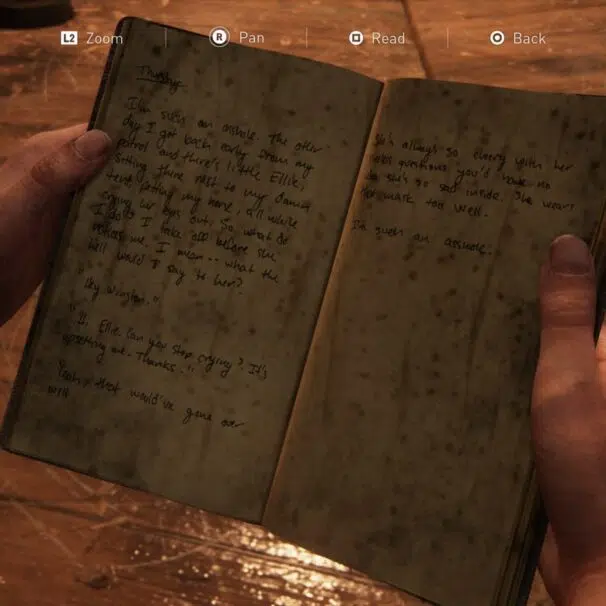 L2 Zoom
R Pan
Read
Back
Thursday.
I'm such an asshole. The other
day I got back early from my
patrol and there's little Ellie,
sitting there next to my damn
tent, petting my horse, all while
crying her eyes out. So what do
I do? I take off before she
notices me. I mean-- what the
hell would I say to her?
"Hey Winston."
"Hi, Ellie. Can you stop crying? It's
upsetting me. Thanks."
Yeah, that would've gone over
well
She's always so cheery with her
questions you'd have no
so sad inside. She wears
mask too well.
I'm such an asshole.